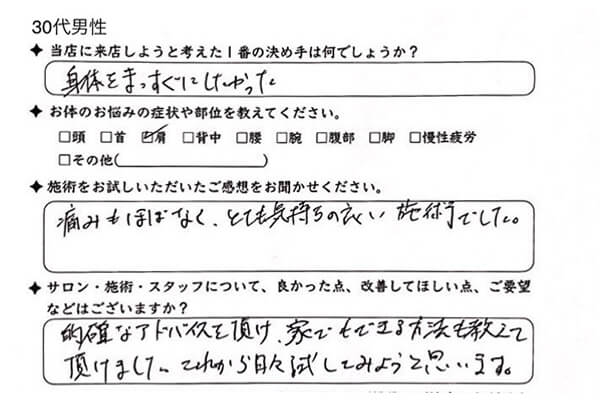 30代男性
✦ 当店に来店しようと考えた1番の決め手は何でしょうか?
身体をまっすぐにしたかった
✦ お体のお悩みの症状や部位を教えてください。
□頭 □首 ☑肩 □背中 □腰 □腕 □腹部 □脚 □慢性疲労
□その他( )
✦ 施術をお試しいただいたご感想をお聞かせください。
痛みもほぼなく、とても気持ちの良い施術でした。
✦ サロン・施術・スタッフについて、良かった点、改善してほしい点、ご要望
などはございますか?
的確なアドバイスを頂け、家でもできる方法も教えて
頂けました。これから日々試してみようと思います。